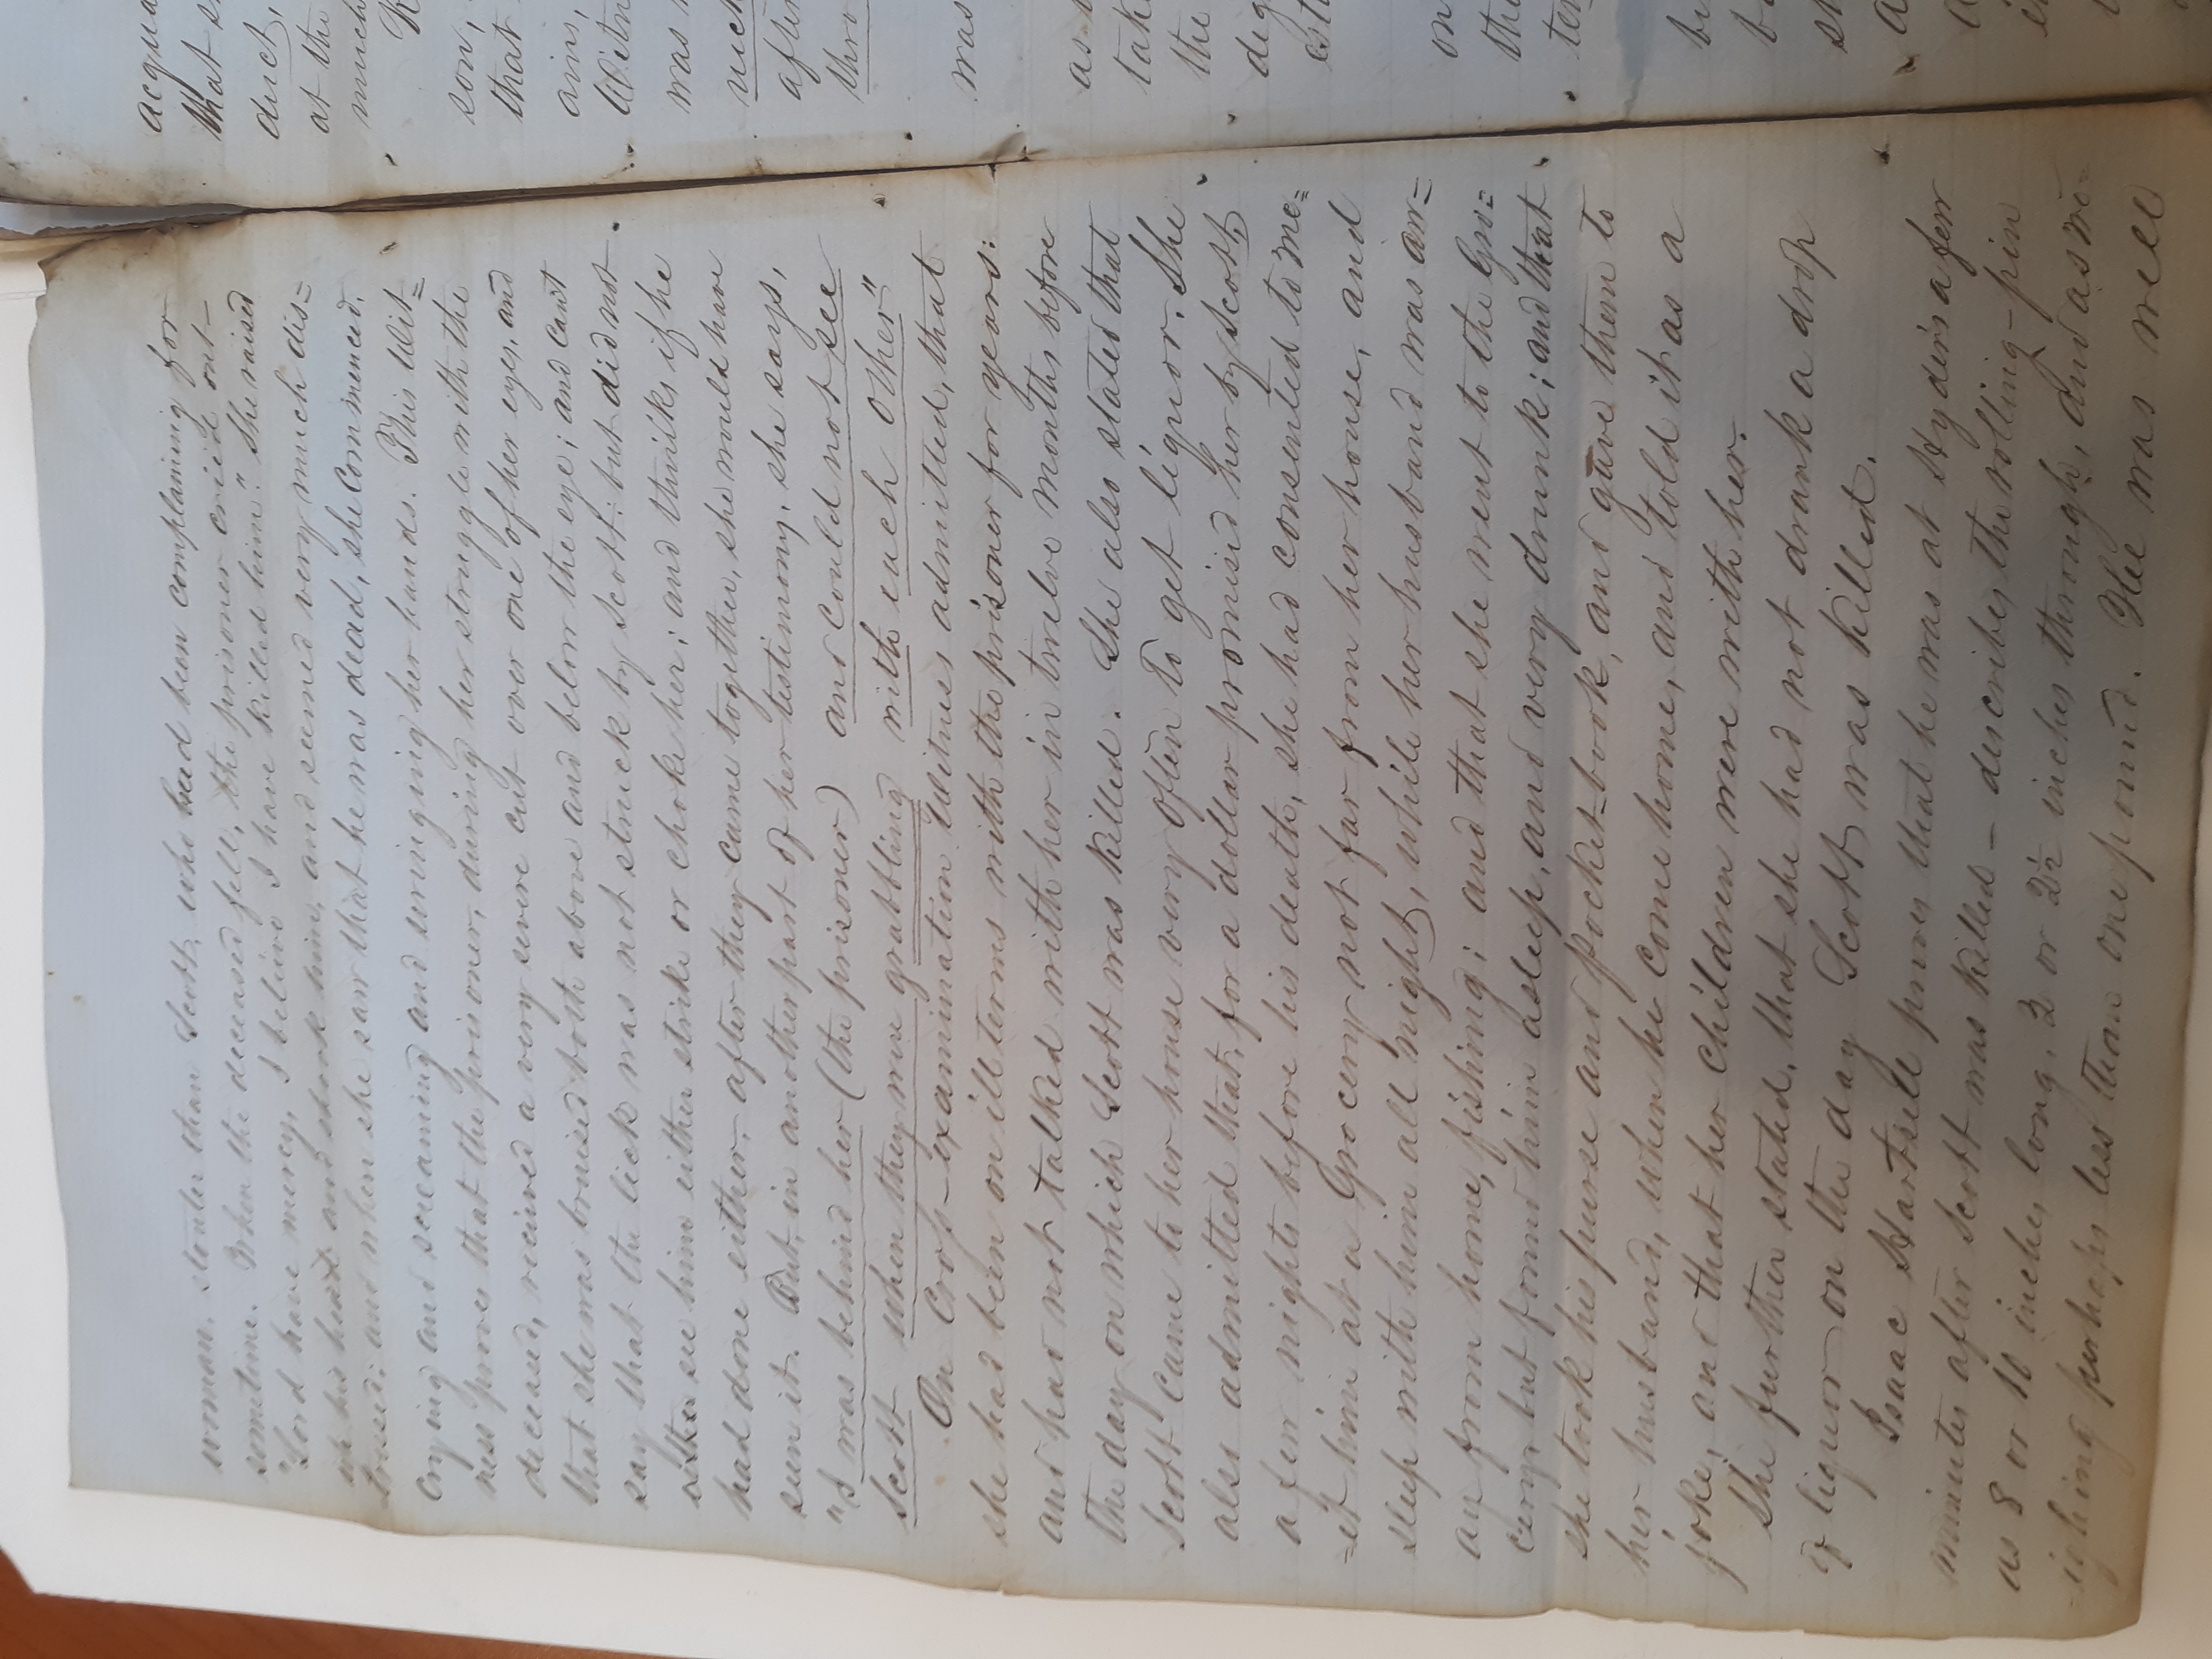 woman, stouter than Scott, who had been complaining for
sometime. When the deceased fell, the prisoner cried out
"Lord have mercy, I believe I have killed him". She raised
up his head and shook him, and seemed very much dis=
tressed; and when she saw that he was dead, she commenced,
crying and screaming and wringing her hands. This Wit=
ness proves that the prisoner, during her struggle with the
deceased, recieved a very severe cut over one of her eyes, and
that she was bruised both above and below the eye; and can't
say that the lick was not struck by Scott: but did not
either see him either strike or choke her; and thinks if he
had done either, after they came together, she would have
seen it. But, in another part of her testimony, she says,
"I was behind her (the prisoner) and could not see
Scott when they were grabbling with each other"
On Cross-examination Witness admitted, that
she had been on ill terms with the prisoner for years:
and had not talked with her in twelve months before
the day on which Scott was killed. She also stated that
Scott came to her house very often to get liquor. She
also admitted that, for a dollar promised her by Scott,
a few nights before his death, she had consented to me=
=et him at a Grocery not far from her house, and
sleep with him all night, while her husband was aw=
ay from home, fishing; and that she went to the Gro=
cery, but found him asleep, and very drunk; and that
she took his purse and pocket-book, and gave them to
her husband, when he come home, and told it as a
joke, and that her children were with her.
She further stated, that she had not drank a drop
of liquor on the day Scott was killed.
Isaac Hartsell proves that he was at Hyder's a few
minutes after Scott was killed - describes the rolling-pin
as 8 or 10 inches long, 2 or 2½ inches through, and as we=
=ighing perhaps less than one pound. Hee was well
acqua
that s
duct,
at the
much
son,
that
ains,
Witn
was
after
thro
was
as
tak
the
deg
est
on
the